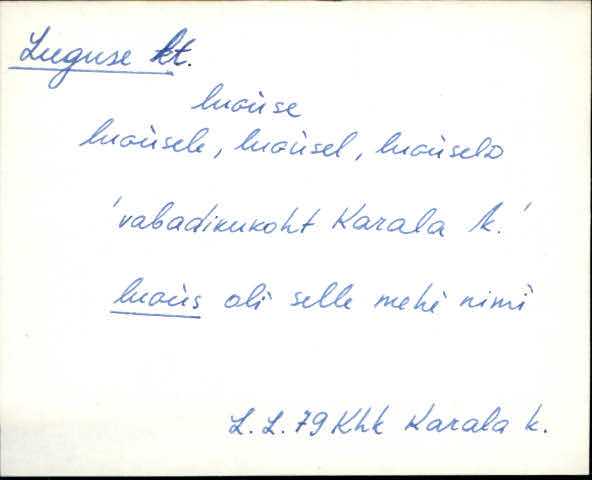 Luguse kt.
luoùse
luoùsele, luoùsel, luoùseld
'vabadikukoht Karala k.'
luoùs oli selle mehe nimi
L. L. 79 Khk Karala k.